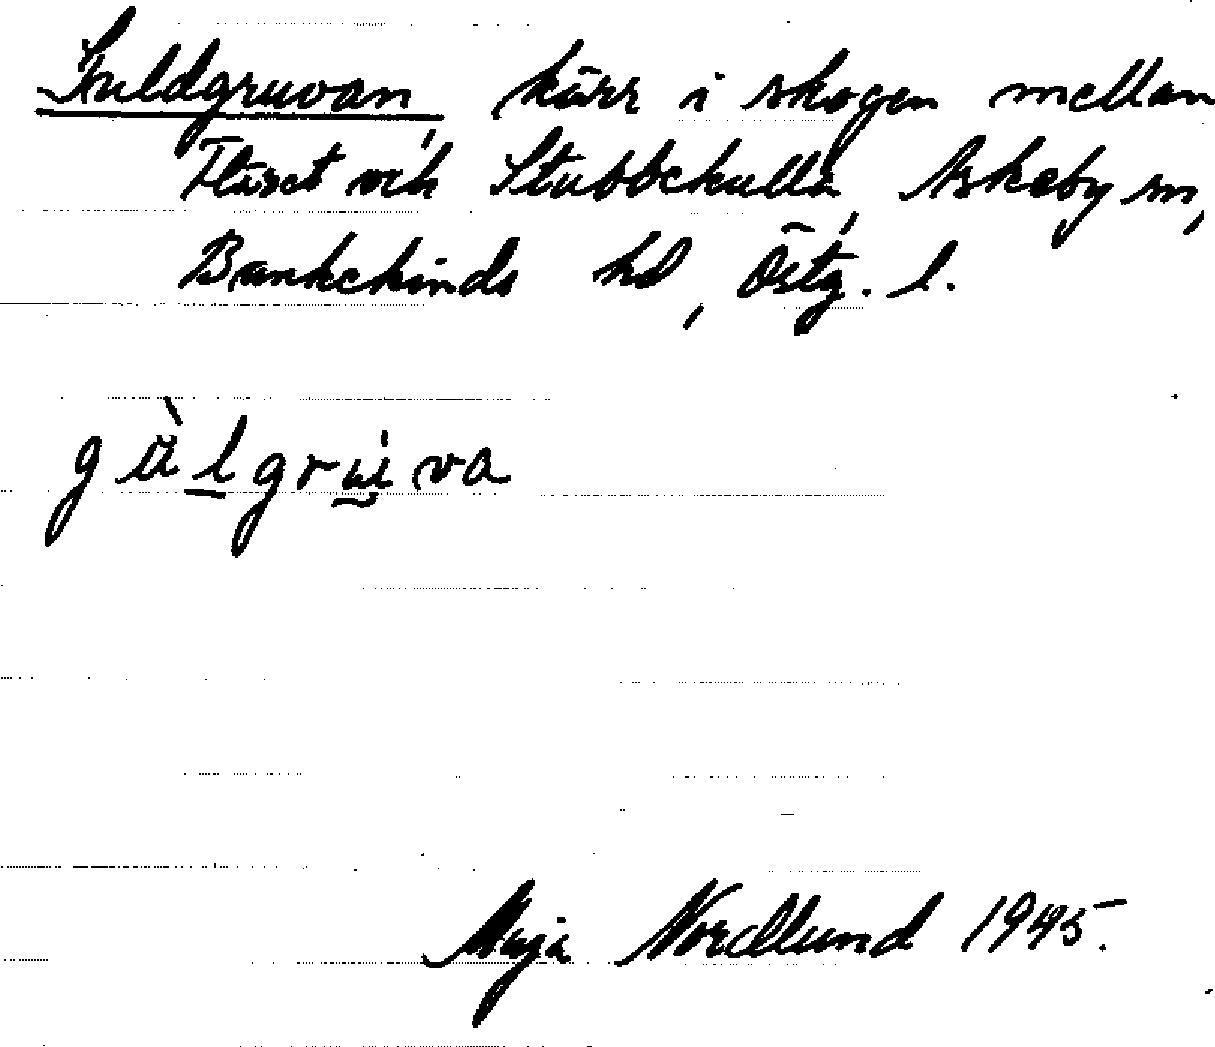 Guldgruvan, kärr i skogen mellan
Flaset och Stubbekulla, Askeby sn,
Bankekinds hd, Östg. l.
gålgruva
Maja Nordlund 1945.